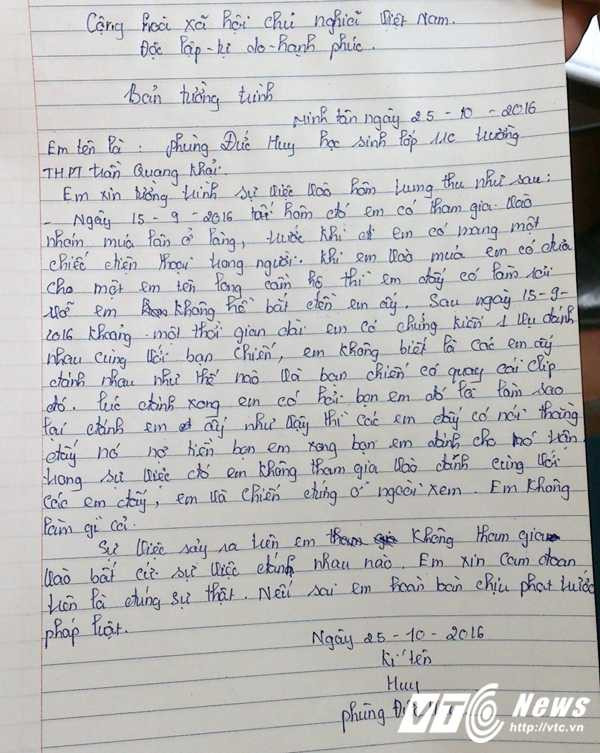 Cộng hoà xã hội chủ nghĩa Việt Nam.
Độc lập - tự do - hạnh phúc.
Bản tường trình
Minh tân ngày 25 - 10 - 2016
Em tên là : phùng Đức Huy học sinh lớp 11C trường
THPT trần Quang Khải.
Em xin tường trình sự việc vào hôm trung thu như sau:
- Ngày 15 - 9 - 2016 tối hôm đó em có tham gia vào
nhóm múa lân ở làng, trước khi đi em có mang một
chiếc điện thoại trong người. khi em vào múa em có đưa
cho một em tên tầm hộ thì em đấy có làm rơi
vỡ em không hề bắt đền em ấy. Sau ngày 15-9-
2016 khoảng một thời gian dài em có chứng kiến 1 vụ đánh
nhau cùng với bạn chiến, em không biết là các em ấy
đánh nhau như thế nào và bạn chiến có quay cái clip
đó. lúc đánh xong em có hỏi bạn em đó là làm sao
lại đánh em ấy như vậy thì các em đấy có nói thằng
đấy nó nợ tiền bạn em xong bạn em đánh cho nó
trong sự việc đó em không tham gia vào đánh cùng với
các em đấy, em và chiến đứng ở ngoài xem. Em không
làm gì cả.
Sự việc sảy ra trên em không tham gia
vào bất cứ sự việc đánh nhau nào. Em xin cam đoan
trên là đúng sự thật. Nếu sai em hoàn toàn chịu phạt trước
pháp luật.
Ngày 25 - 10 - 2016
kí tên
Huy
phùng Đức Huy
VTC News
http://vtc.vn